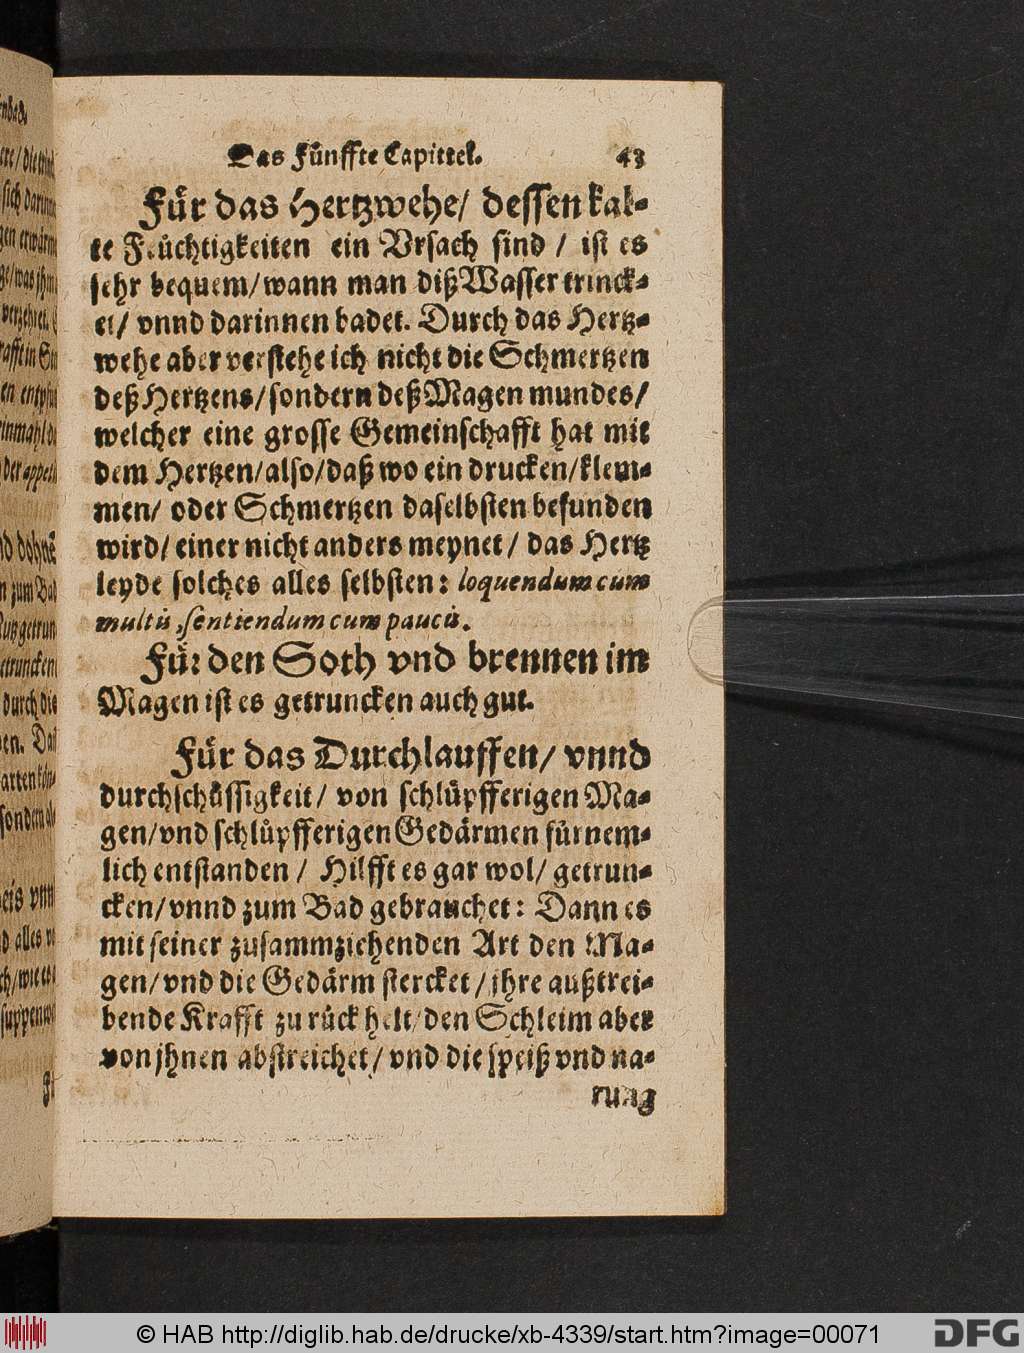 Das Fünffte Capittel. 43
Für das Hertzwehe/ dessen kal-
te Feüchtigkeiten ein Vrsach sind / ist es
sehr bequem/wann man diß Wasser trinck-
et/ vnnd darinnen badet. Durch das Hertz-
wehe aber verstehe ich nicht die Schmertzen
deß Hertzens/sondern deß Magen mundes/
welcher eine grosse Gemeinschafft hat mit
dem Hertzen/also/daß wo ein drucken/klem-
men/ oder Schmertzen daselbsten befunden
wird/ einer nicht anders meynet / das Hertz
leyde solches alles selbsten: loquendum cum
multis, sentiendum cum paucis.
Für den Soth vnd brennen im
Magen ist es getruncken auch gut.
Für das Durchlauffen/ vnnd
durchschüssigkeit/ von schlüpfferigen Ma-
gen/vnd schlüpfferigen Gedärmen fürnem-
lich entstanden / Hilfft es gar wol/ getrun-
cken/vnnd zum Bad gebrauchet: Dann es
mit seiner zusammziehenden Art den Ma-
gen/vnd die Gedärm stercket / jhre außtrei-
bende Krafft zu rück helt/den Schleim aber
von jhnen abstreichet/ vnd die speiß vnd na-
rung
© HAB http://diglib.hab.de/drucke/xb-4339/start.htm?image=00071
DFG